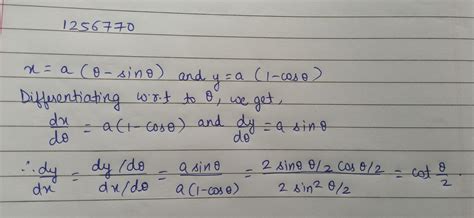 1256770
x = a (θ - sinθ) and y = a (1-cosθ)
Differentiating w.r.t to θ, we get,
dx/dθ = a(1-cosθ) and dy/dθ = a sinθ
∴ dy/dx = (dy/dθ)/(dx/dθ) = (a sinθ)/(a(1-cosθ)) = (2 sinθ θ/2 cosθ/2)/(2 sin² θ/2) = cot θ/2.